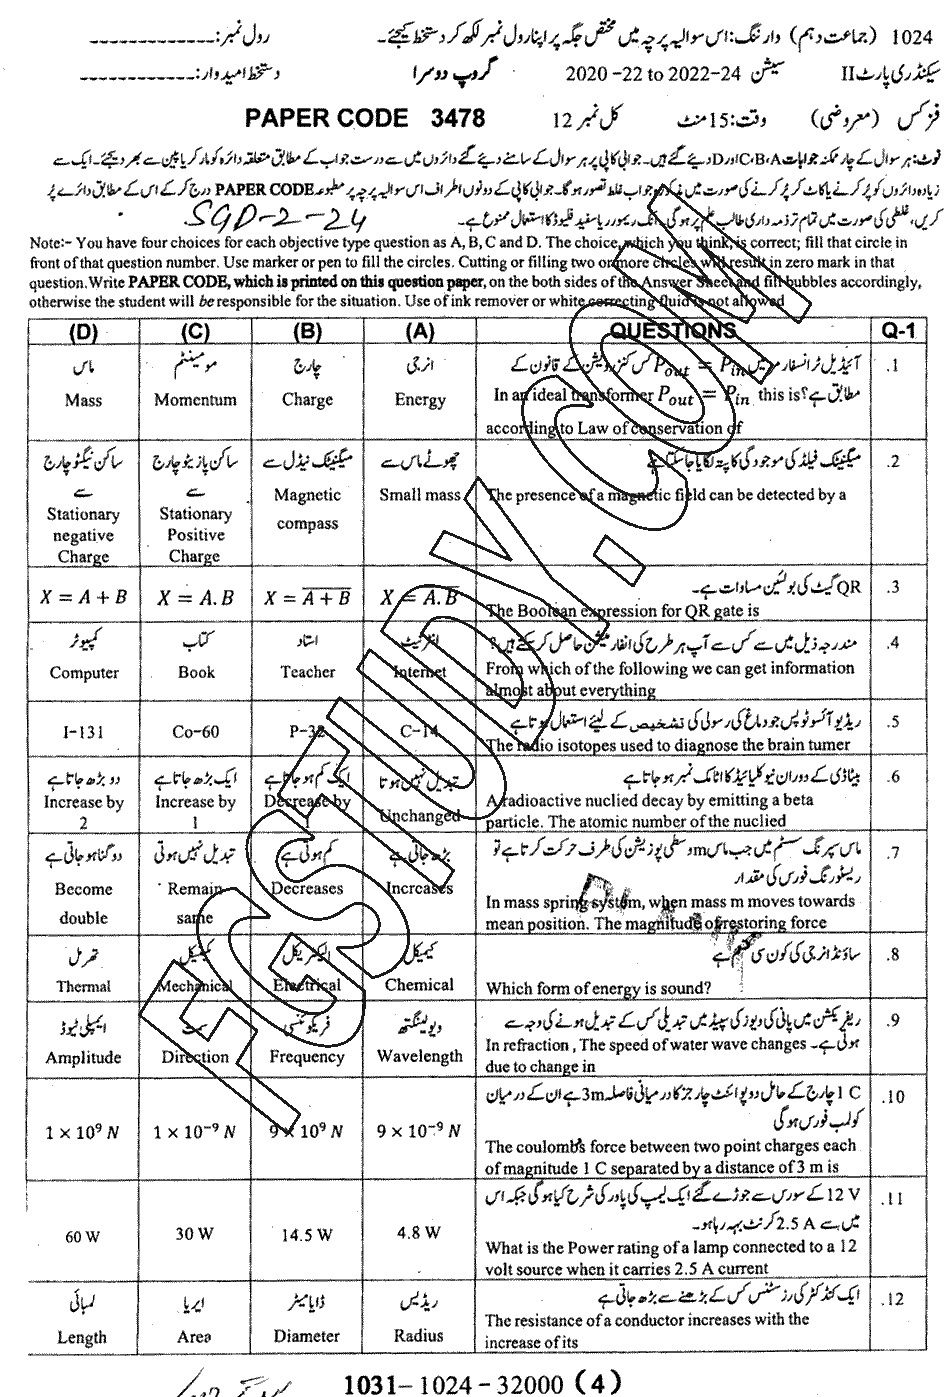 1024 (جماعت دہم) وارننگ: اس سوالیہ پرچہ میں مختص جگہ پر اپنا رول نمبر لکھ کر دستخط کیجئے۔ رول نمبر: -------------
سیکنڈری پارٹ II سیشن 2020 -22 to 2022-24 گروپ دوسرا دستخط امیدوار: ------------
فزکس (معروضی) وقت: 15 منٹ کل نمبر 12 PAPER CODE 3478
نوٹ: ہر سوال کے چار ممکنہ جوابات A،B،C اور D دیئے گئے ہیں۔ جوابی کاپی پر ہر سوال کے سامنے دیئے گئے دائروں میں سے درست جواب کے مطابق متعلقہ دائرہ کو مارکر یا پین سے بھر دیجئے۔ ایک سے
زیادہ دائروں کو پُر کرنے یا کاٹ کر پُر کرنے کی صورت میں مذکورہ جواب غلط تصور ہوگا۔ جوابی کاپی کے دونوں اطراف اس سوالیہ پرچہ پر مطبوعہ PAPER CODE درج کر کے اس کے مطابق دائرے پُر
کریں، غلطی کی صورت میں تمام تر ذمہ داری طالب علم پر ہوگی۔ انک ریموور یا سفید فلیوڈ کا استعمال ممنوع ہے۔ SGD-2-24
Note:- You have four choices for each objective type question as A, B, C and D. The choice which you think is correct; fill that circle in
front of that question number. Use marker or pen to fill the circles. Cutting or filling two or more circles will result in zero mark in that
question. Write PAPER CODE, which is printed on this question paper, on the both sides of the Answer Sheet and fill bubbles accordingly,
otherwise the student will be responsible for the situation. Use of ink remover or white correcting fluid is not allowed
(D) (C) (B) (A) QUESTIONS Q-1
ماس مومینٹم چارج انرجی آئیڈیل ٹرانسفارمر میں Pout = Pin کس کنزرویشن کے قانون کے .1
Mass Momentum Charge Energy مطابق ہے؟ In an ideal transformer Pout = Pin this is
according to Law of conservation of
ساکن نیگٹو چارج ساکن پازیٹو چارج میگنیٹک نیڈل سے چھوٹے ماس سے میگنیٹک فیلڈ کی موجودگی کا پتہ لگایا جا سکتا ہے .2
سے سے Magnetic Small mass The presence of a magnetic field can be detected by a
Stationary Stationary compass
negative Positive
Charge Charge
QR گیٹ کی بولئین مساوات ہے۔ .3
X = A + B X = A.B X = \overline{A + B} X = \overline{A.B}
The Boolean expression for QR gate is
کمپیوٹر کتاب استاد انٹرنیٹ مندرجہ ذیل میں سے کس سے آپ ہر طرح کی انفارمیشن حاصل کر سکتے ہیں؟ .4
Computer Book Teacher Internet From which of the following we can get information
almost about everything
ریڈیو آئسوٹوپس جو دماغ کی رسولی کی تشخیص کے لیئے استعمال ہوتا ہے .5
I-131 Co-60 P-32 C-14
The radio isotopes used to diagnose the brain tumer
دو بڑھ جاتا ہے ایک بڑھ جاتا ہے ایک کم ہو جاتا ہے تبدیل نہیں ہوتا بیٹا ڈی کے دوران نیوکلیائیڈ کا اٹامک نمبر ہو جاتا ہے .6
Increase by Increase by Decrease by Unchanged A radioactive nuclied decay by emitting a beta
2 1 particle. The atomic number of the nuclied
دوگنا ہو جاتی ہے تبدیل نہیں ہوتی کم ہوتی ہے بڑھ جاتی ہے ماس سپرنگ سسٹم میں جب ماس m وسطی پوزیشن کی طرف حرکت کرتا ہے تو .7
ریسٹورنگ فورس کی مقدار
Become Remain Decreases Increases In mass spring system, when mass m moves towards
double same mean position. The magnitude of restoring force
تھرمل مکینیکل الیکٹریکل کیمیکل ساؤنڈ انرجی کی کون سی قسم ہے .8
Thermal Mechanical Electrical Chemical Which form of energy is sound?
ایمپلی ٹیوڈ سمت فریکوئنسی ویولینگتھ ریفریکشن میں پانی کی ویوز کی سپیڈ میں تبدیلی کس کے تبدیل ہونے کی وجہ سے .9
Amplitude Direction Frequency Wavelength ہوتی ہے۔ In refraction , The speed of water wave changes
due to change in
1 C چارج کے حامل دو پوائنٹ چارجز کا درمیانی فاصلہ 3m ہے ان کے درمیان .10
کولمب فورس ہوگی
1 × 10⁹ N 1 × 10⁻⁹ N 9 × 10⁹ N 9 × 10⁻⁹ N
The coulomb's force between two point charges each
of magnitude 1 C separated by a distance of 3 m is
12 V کے سورس سے جوڑے گئے ایک لیمپ کی پاور کی شرح کیا ہوگی جبکہ اس .11
میں سے 2.5 A کرنٹ بہہ رہا ہو۔
60 W 30 W 14.5 W 4.8 W
What is the Power rating of a lamp connected to a 12
volt source when it carries 2.5 A current
لمبائی ایریا ڈایامیٹر ریڈیس ایک کنڈکٹر کی رزسٹنس کس کے بڑھنے سے بڑھ جاتی ہے .12
Length Area Diameter Radius The resistance of a conductor increases with the
increase of its
1031– 1024 – 32000 (4)
FGSTUDY.COM